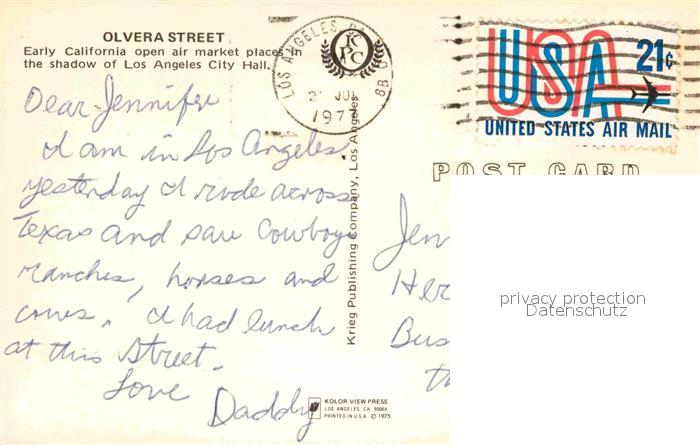 OLVERA STREET
Early California open air market places in
the shadow of Los Angeles City Hall.
Dear Jennifer
I am in Los Angeles
yesterday I rode across
Texas and saw Cowboys
ranches, horses and
cows. I had lunch
at this Street.
Love
Daddy
Krieg Publishing Company, Los Angeles
KOLOR VIEW PRESS
LOS ANGELES, CA. 90064
PRINTED IN U.S.A. © 1975
LOS ANGELES
JUL
197
USA 21¢
UNITED STATES AIR MAIL
POST CARD
Jen
Her
Bus
th
privacy protection
Datenschutz